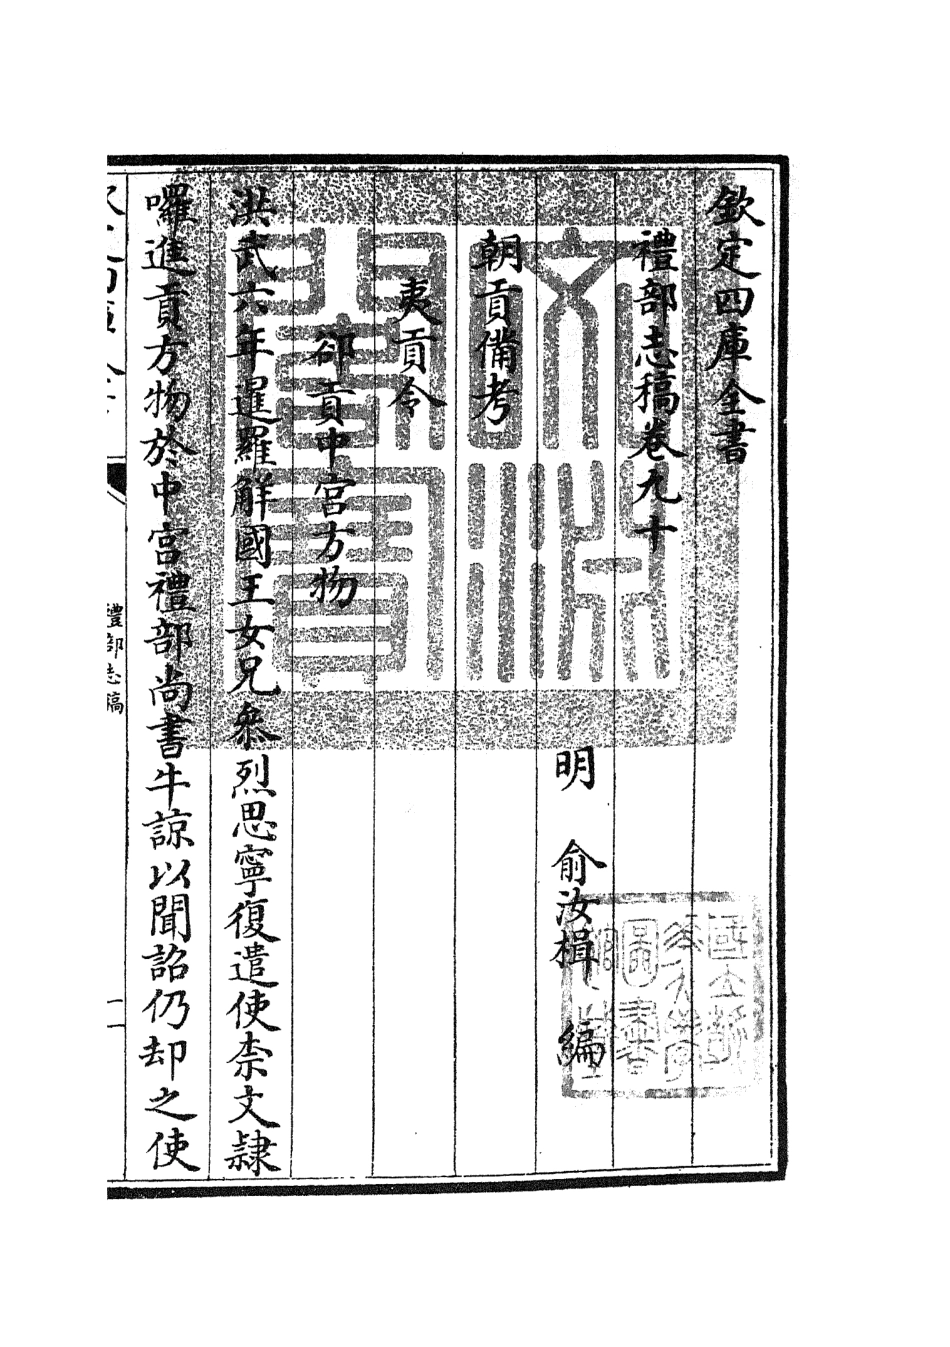 欽定四庫全書
禮部志稿卷九十
明 俞汝楫 編
朝貢備考
夷貢令
卻貢中宮方物
洪武六年暹羅斛國王女兄參烈思寧復遣使柰文隷
囉進貢方物於中宮禮部尚書牛諒以聞詔仍却之使
禮部志稿
一
文淵閣寶